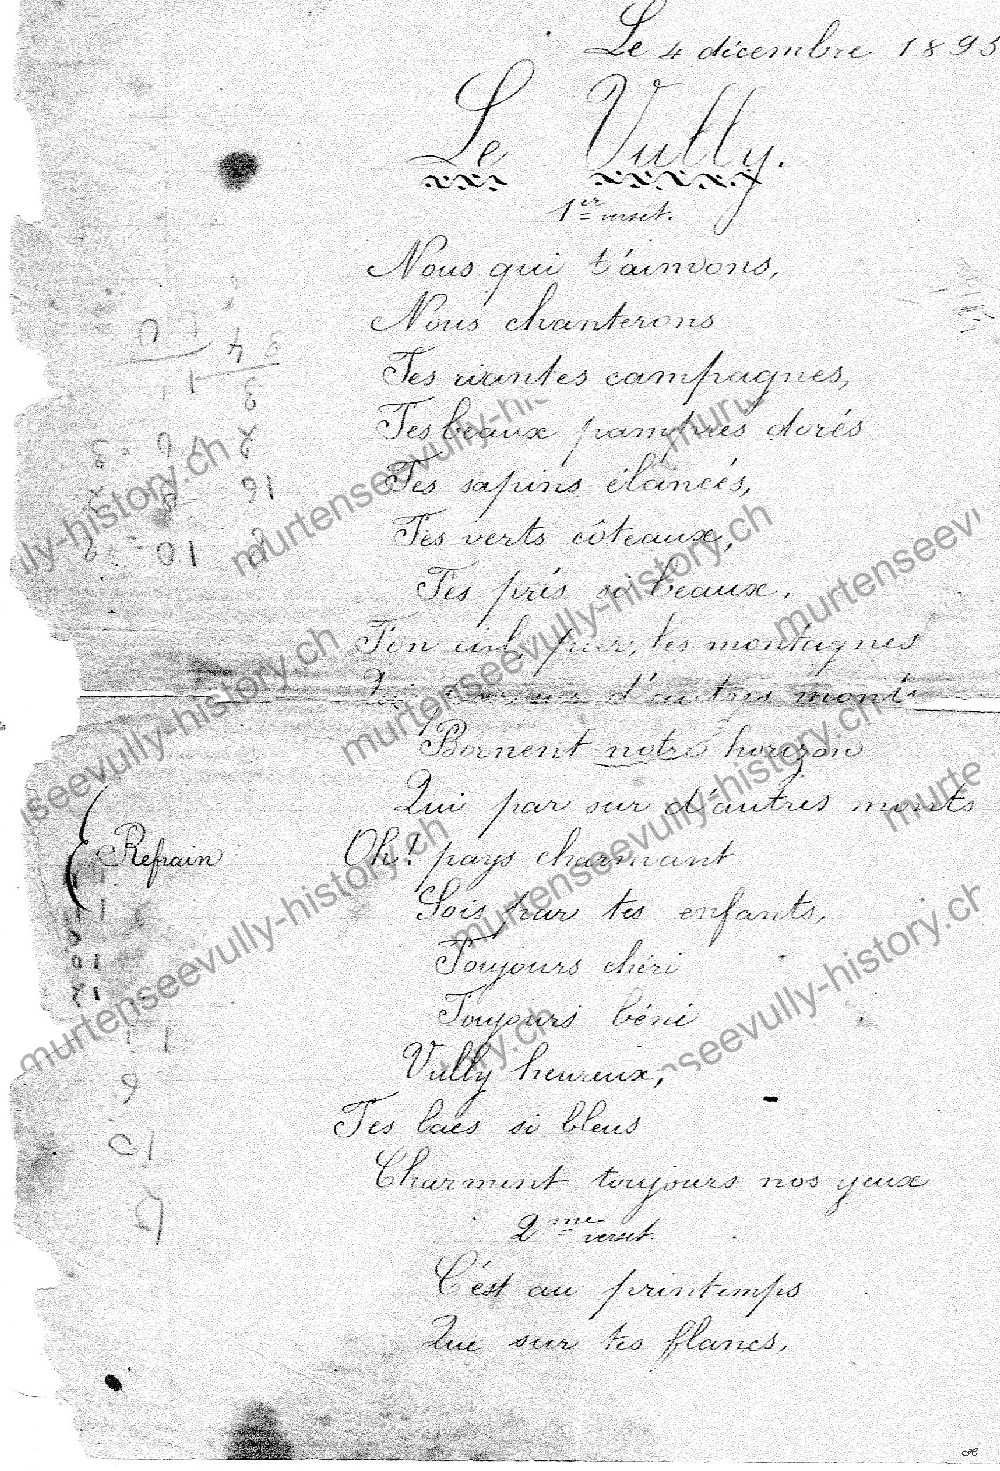 Le 4 décembre 1893
Le Vully.
1er verset.
Nous qui t'aimons,
Nous chanterons
Tes riantes campagnes,
Tes beaux pampres dorés
Tes sapins élancés,
Tes verts côteaux,
Tes prés si beaux.
Ton ciel pur, tes montagnes
Qui d'autres monts
Bornent notre horizon
Qui par sur d'autres monts
Refrain
Oh! pays charmant
Sois par tes enfants,
Toujours chéri
Toujours béni
Vully heureux,
Tes lacs si bleus
Charment toujours nos yeux
2me verset.
C'est au printemps
Que sur tes flancs,
murtenseevully-history.ch